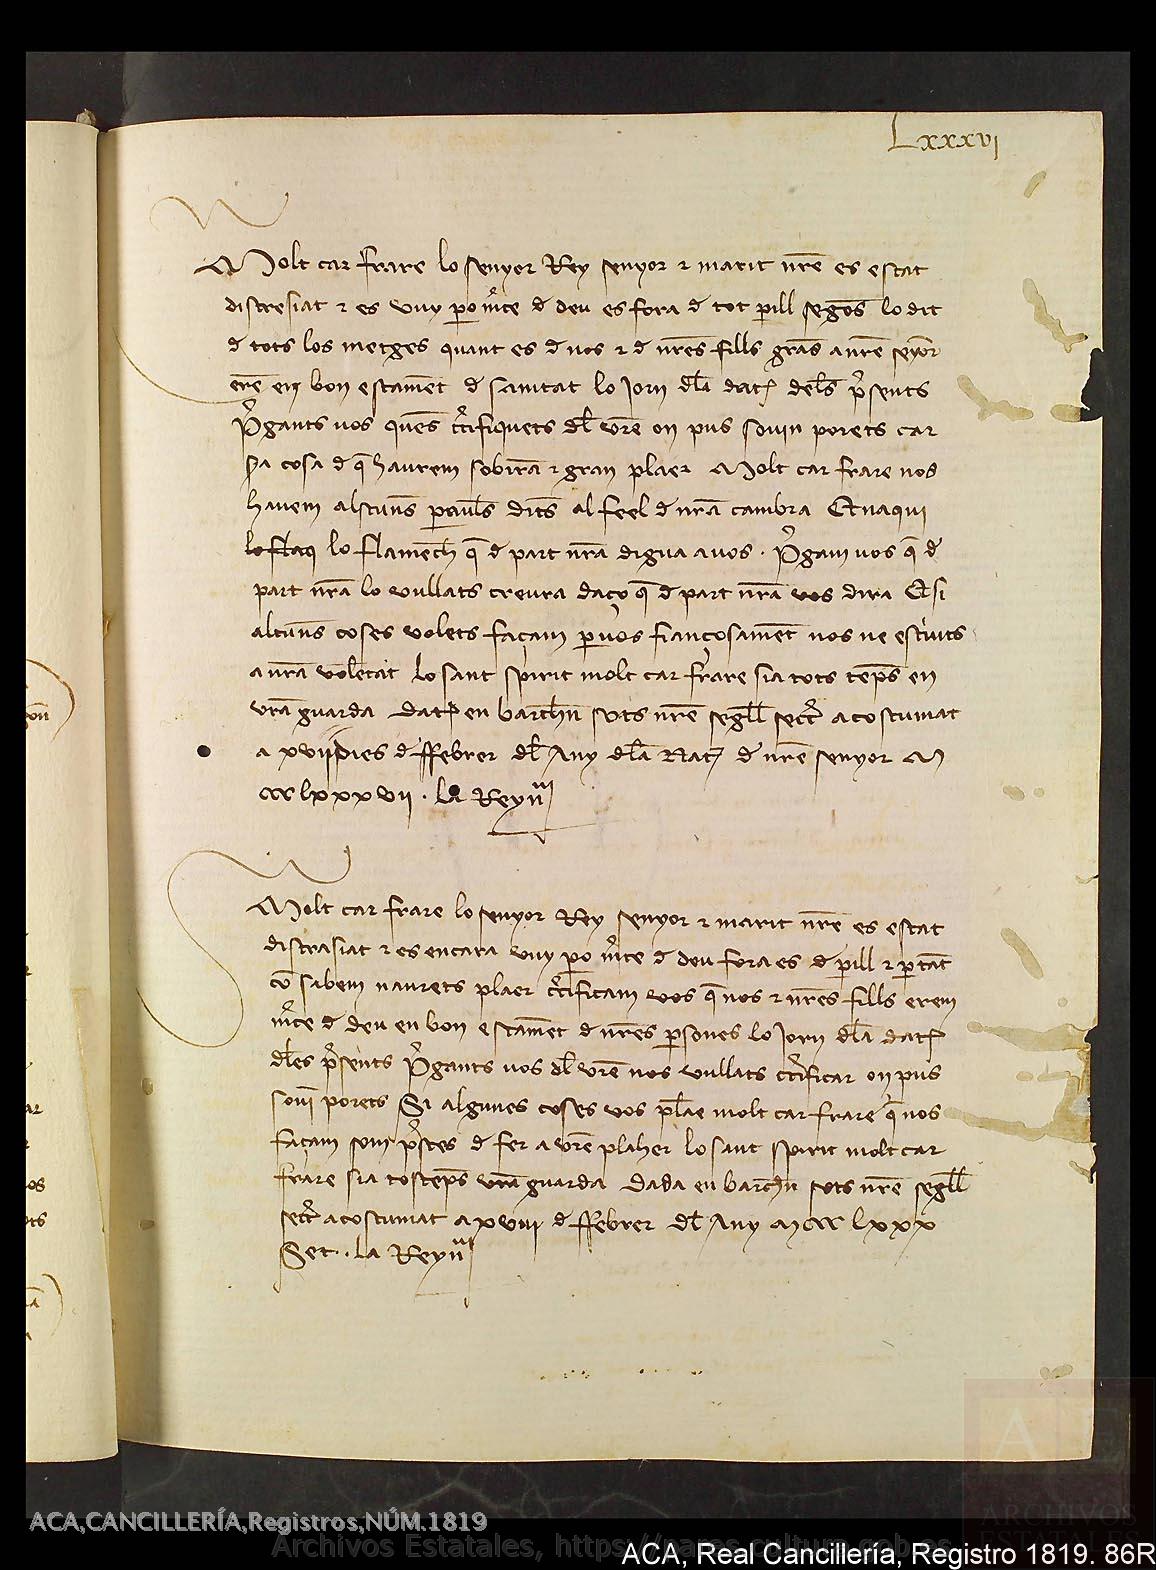 Lxxxvi
Molt car frare lo senyor Rey senyor ⁊ marit nr̄e es estat
discresiat ⁊ es vuy ꝑo mc̄e đ deu es fora đ tot ꝑill segōs lo dit
đ tots los metges quant es đ nos ⁊ đ nr̄es fills grās a nr̄e seyōr
erē en bon estamēt đ sanitat lo jorn dl̄a dat dels p̄sents
P̄gants vos quēs c̄tifiquets dl̄ vr̄e on pus sovin porets car
sa cosa đ q̄ haurem sobirāa ⁊ gran plaer Molt car frare nos
havem alscuns ꝑauls dits al feel đ nr̄a cambra Enaqui
lo flaq lo flamench q̄ đ part nr̄a digua a vos . P̄gam vos q̄ đ
part nr̄a lo vullats creura daço q̄ đ part nr̄a vos dira E si
alcuns coses volets façam ꝑ vos fiançosamēt nos ne esc̄ivits
a nr̄a volētat Lo sant spirit molt car frare sia tots tēps en
vr̄a guarda Dat en barchn̄ sots nr̄e segl̄l secr̄ acostumat
a xviij dies đ ffebrer dl̄ Any dl̄a Nat đ nr̄e senyor M
CCC lxxxvii . la Reyna
Molt car frare lo senyor Rey senyor ⁊ marit nr̄e es estat
distrasiat ⁊ es encara vuy ꝑo mc̄e đ deu fora es đ ꝑill ⁊ ꝑ tāt
cō sabem n aurets plaer c̄tificam vos q̄ nos ⁊ nr̄es fills erem
mc̄e đ deu en bon estamēt đ nr̄es ꝑsones lo jorn dl̄a dat
dl̄es p̄sents P̄gants vos dl̄ vr̄e nos vullats c̄tificar on pus
sovī porets Si algunes coses vos pl̄ae molt car frare q̄ nos
façam som p̄stes đ fer a vr̄e plaher lo sant spirit molt car
frare sia tostēps vr̄a guarda Dada en barchn̄ sots nr̄e segl̄l
secr̄ acostumat a xviij đ ffebrer dl̄ Any MCCC lxxx
Set . la Reyna
ACA,CANCILLERÍA,Registros,NÚM.1819
Archivos Estatales, https://pares.cultura.gob.es
ARCHIVOS
ESTATALES
ACA, Real Cancillería, Registro 1819. 86R